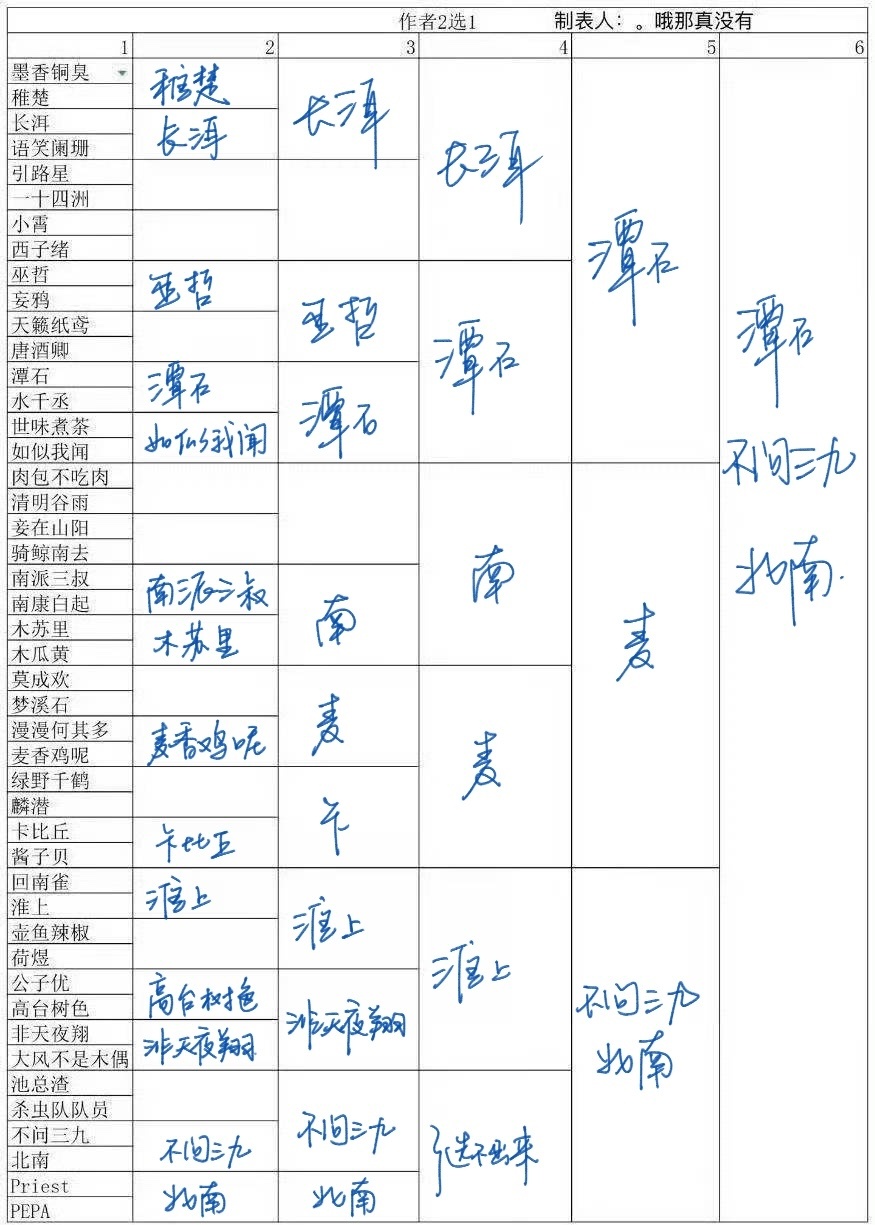 作者2选1 制表人：。哦那真没有
1 2 3 4 5 6
墨香铜臭
稚楚
长洱
语笑阑珊
引路星
一十四洲
小霄
西子绪
巫哲
妄鸦
天籁纸鸢
唐酒卿
潭石
水千丞
世味煮茶
如似我闻
肉包不吃肉
清明谷雨
妾在山阳
骑鲸南去
南派三叔
南康白起
木苏里
木瓜黄
莫成欢
梦溪石
漫漫何其多
麦香鸡呢
绿野千鹤
麟潜
卡比丘
酱子贝
回南雀
淮上
壶鱼辣椒
荷煜
公子优
高台树色
非天夜翔
大风不是木偶
池总渣
杀虫队队员
不问三九
北南
Priest
PEPA
稚楚
长洱
巫哲
潭石
如似我闻
南派三叔
木苏里
麦香鸡呢
卡比丘
淮上
高台树色
非天夜翔
不问三九
北南
长洱
巫哲
潭石
南
麦
卡
淮上
非天夜翔
不问三九
北南
长洱
潭石
南
麦
淮上
选不出来
潭石
麦
不问三九
北南
潭石
不问三九
北南.